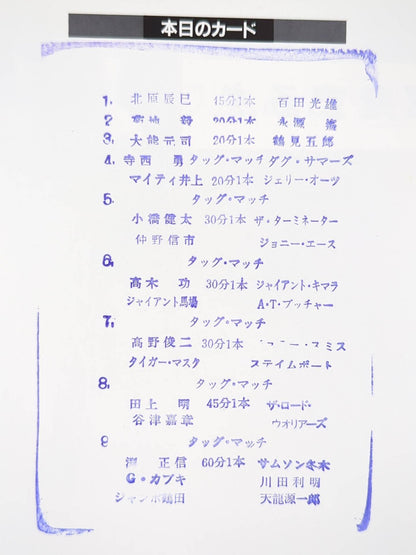 本日のカード
1. 北原辰巳 45分1本 百田光雄
2. 菊地 毅 20分1本 永源 遙
3. 大熊元司 20分1本 鶴見五郎
4. 寺西 勇 タッグ・マッチ ダグ・サマーズ
マイティ井上 20分1本 ジェリー・オーツ
5. タッグ・マッチ
小橋健太 30分1本 ザ・ターミネーター
仲野信市 ジョニー・エース
6. タッグ・マッチ
高木 功 30分1本 ジャイアント・キマラ
ジャイアント馬場 A・T・ブッチャー
7. タッグ・マッチ
高野俊二 30分1本 スミス
タイガー・マスク スティムボート
8. タッグ・マッチ
田上 明 45分1本 ザ・ロード・
谷津嘉章 ウォリアーズ
9 タッグ・マッチ
淵 正信 60分1本 サムソン冬木
G・カブキ 川田利明
ジャンボ鶴田 天龍源一郎